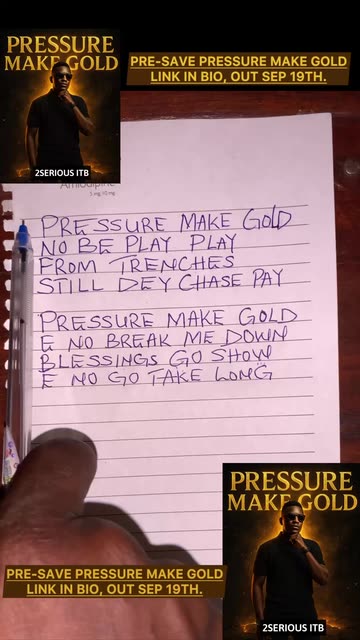 PRESSURE
MAKE GOLD
2SERIOUS ITB
PRE-SAVE PRESSURE MAKE GOLD
LINK IN BIO, OUT SEP 19TH.
Amlodipine
5 mg/10 mg
PRESSURE MAKE GOLD
NO BE PLAY PLAY
FROM TRENCHES
STILL DEY CHASE PAY
PRESSURE MAKE GOLD
E NO BREAK ME DOWN
BLESSINGS GO SHOW
E NO GO TAKE LONG
PRESSURE
MAKE GOLD
2SERIOUS ITB
PRE-SAVE PRESSURE MAKE GOLD
LINK IN BIO, OUT SEP 19TH.